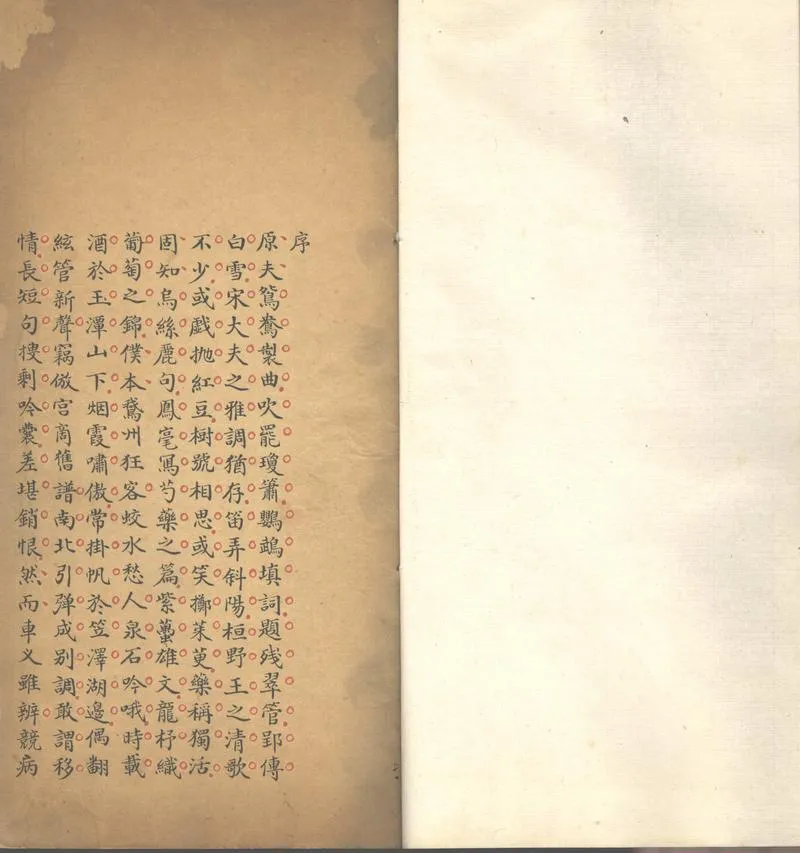 序
原夫鴛鴦製曲吹罷瓊簫鸚鵡填詞題殘翠管郢傳
白雪宋大夫之雅調猶存笛弄斜陽桓野王之清歌
不少或戲抛紅豆樹號相思或笑擲茱萸藥稱獨活
固知烏絲麗句鳳毫寫芍藥之篇紫蠆雄文龍杼織
葡萄之錦僕本鵞州狂客蛟水愁人泉石吟哦時載
酒於玉潭山下烟霞嘯傲常掛帆於笠澤湖邊偶翻
絃管新聲竊倣宮商舊譜南北引弹成别調敢謂移
情長短句摟剩吟囊差堪銷恨然而車义雖辨競病